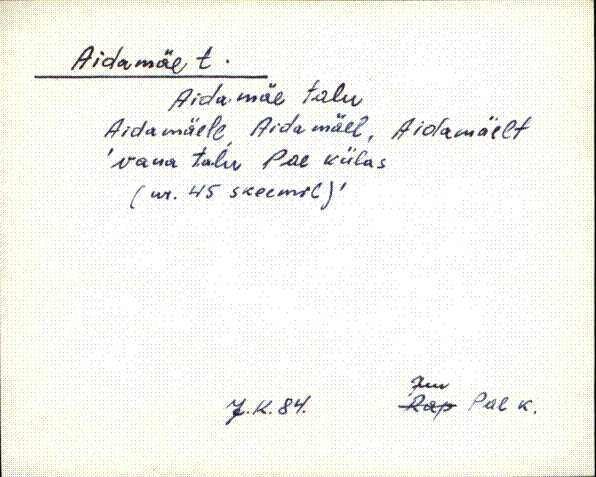 Aidamäe t.
Aidamäe talu
Aidamäele, Aidamäel, Aidamäelt
'vana talu Pae külas
(nr. 45 skeemil)'
J.K.84.
Juu
Rap Pae k.